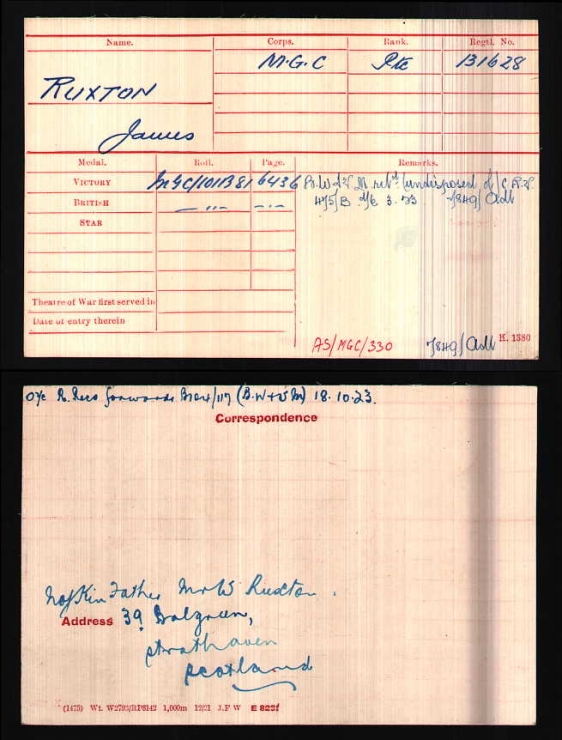 Name. Corps. Rank. Regtl. No.
M.G.C Pte 131628
RUXTON
James
Medal. Roll. Page. Remarks.
VICTORY MGC/101B81 6436 B.W & V. M ret'd (undisposed of) C R.V.
BRITISH —"— —"— 475/B d/6.3.23 7/849/Adt
STAR
Theatre of War first served in
Date of entry therein
AS/MGC/330 7/849/Adt H. 1380
O/c R. Recs forwards /117 (B.W & V M) 18.10.23.
Correspondence
N of Kin Father Mr W Ruxton.
Address 39
Strathaven
Scotland
(1473) Wt. W2793/RP8142 1,000m 12/21 J.F W E 8231